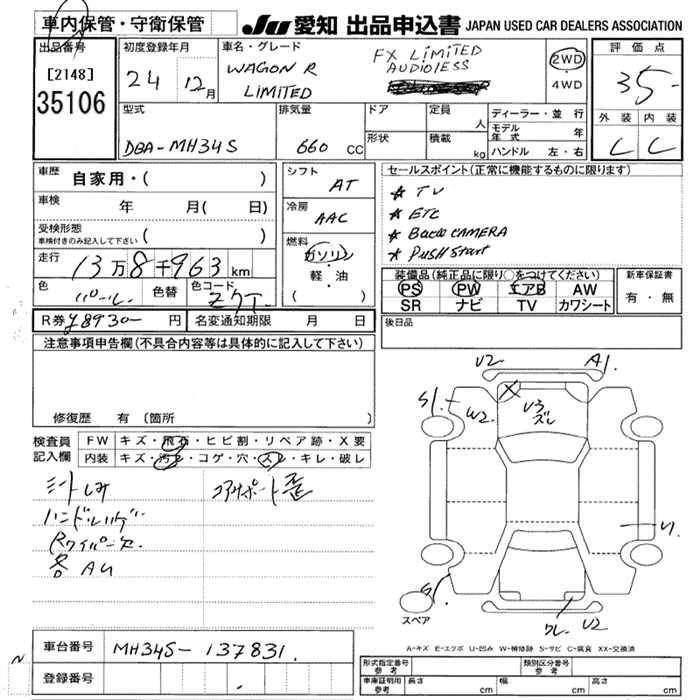 車内保管・守衛保管
JU 愛知 出品申込書 JAPAN USED CAR DEALERS ASSOCIATION
出品番号
[2148]
35106
初度登録年月
24 12月
車名・グレード
WAGON R
LIMITED
FX LiMiTED
AUDIOLESS
2WD
・
4WD
評価点
35-
外装 内装
C C
型式
DBA-MH34S
排気量
660 CC
ドア
形状
定員 人
積載 kg
ディーラー・並行
モデル年式 年
ハンドル 左・右
車歴
自家用・( )
車検 年 月( 日)
受検形態
車検付きのみ記入して下さい ( )
走行
13万8千963km
色 パール
色替
色コード ZQT
R券 ¥8930- 円
名変通知期限 月 日
シフト
AT
冷房
AAC
燃料
ガソリン
軽・油
( )
セールスポイント(正常に機能するものに限ります)
* TV
* ETC
* Back CAMERA
* PUSH Start
装備品(純正品に限り○をつけてください)
PS PW エアB AW
SR ナビ TV カワシート
新車保証書
有・無
後日品
注意事項申告欄(不具合内容等は具体的に記入して下さい)
修復歴 有 〔箇所 〕
検査員記入欄
FW キズ・飛石・ヒビ割・リペア跡・X要
内装 キズ・汚れ・コゲ・穴・スレ・キレ・破レ
シートしみ
ハンドルハゲ
Rワイパー欠
各AU
コアサポート歪
U2 A1.
S1. W2 U3
ズレ
U.
S1.
ワレ. U2
スペア
A-キズ E-エクボ U-凹み W-補修跡 S-サビ C-腐食 XX-交換済
車台番号 MH34S-137831.
登録番号
N
形式指定番号
参考
類別区分番号
参考
車庫証明用
参考
長さ cm
幅 cm
高さ cm